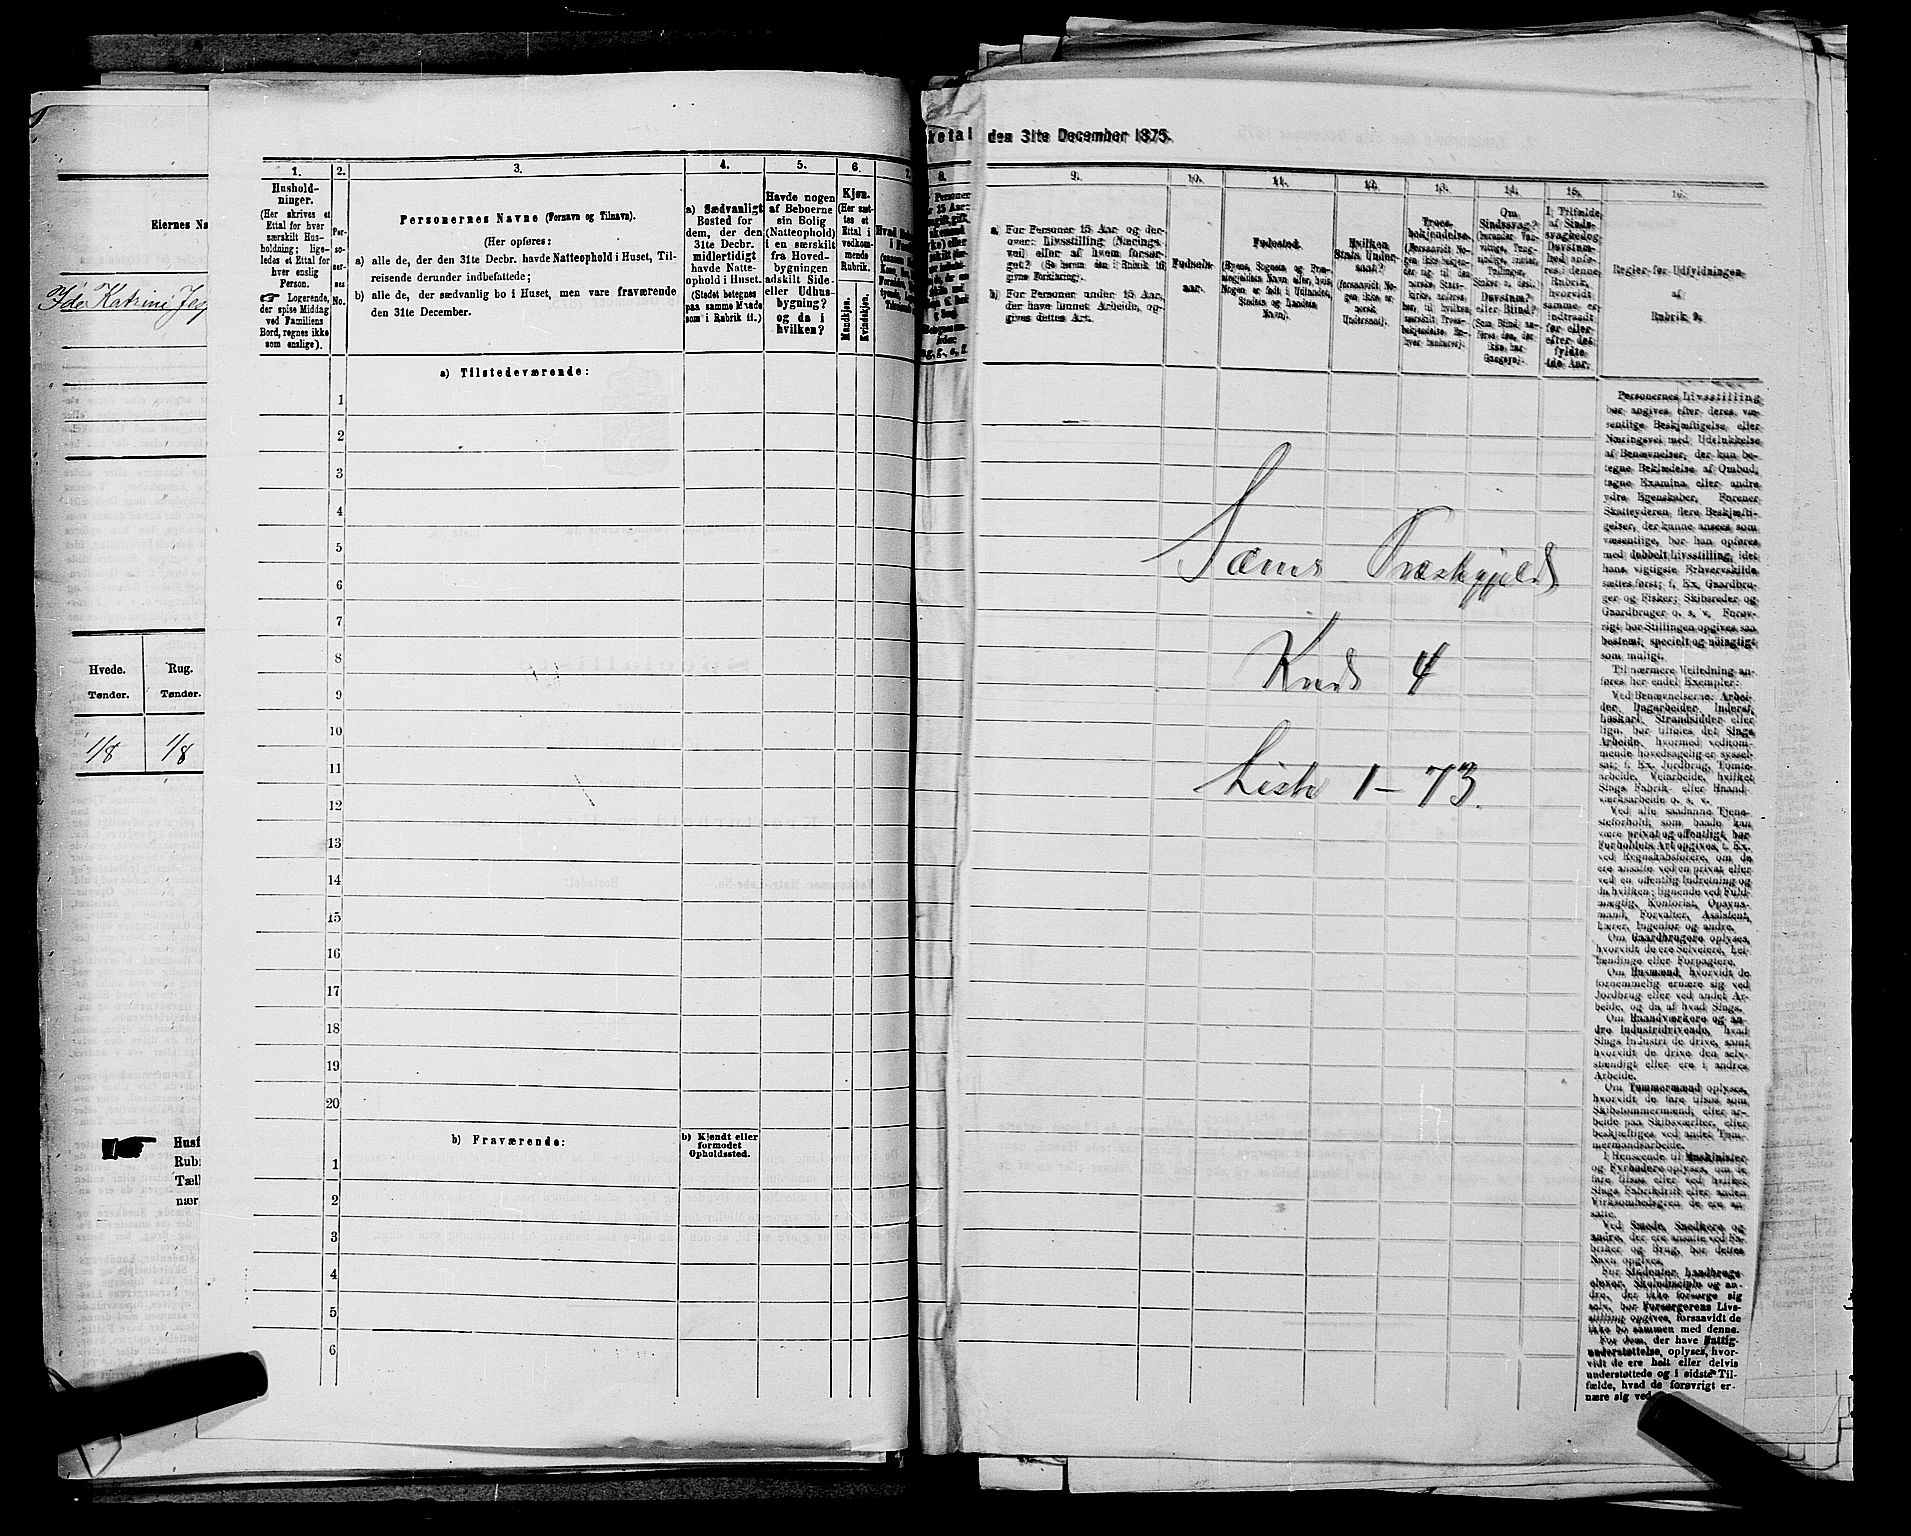 Eiernes Na
Ide Katrine Jeg
Hvede.
Rug.
Tønder.
Tønder.
1/8
1/8
Husf
Rub
Tæll
nær
1.
Hushold-
ninger.
(Her skrives et
Ettal for hver
særskilt Hus-
holdning; lige-
ledes et Ettal for
hver enslig
Person.
Logerende,
der spise Middag
ved Familiens
Bord, regnes ikke
som enslige).
2.
Per-
so-
ner-
nes
No.
3.
Personernes Navne (Fornavn og Tilnavn).
(Her opføres:
a) alle de, der den 31te Decbr. havde Natteophold i Huset, Til-
reisende derunder indbefattede;
b) alle de, der sædvanlig bo i Huset, men vare fraværende
den 31te December.
4.
a) Sædvanligt
Bosted for
dem, der den
31te Decbr.
midlertidigt
havde Natte-
ophold i Huset.
(Stedet betegnes
paa samme Maade
som i Rubrik 11.)
5.
Havde nogen
af Beboerne
sin Bolig
(Natteophold)
i en særskilt
fra Hoved-
bygningen
adskilt Side-
eller Udhus-
bygning?
og da i
hvilken?
6.
Kjøn.
(Her sæt-
tes et
Ettal i
vedkom-
mende
Rubrik.
Mandkjøn.
Kvindekjøn.
a) Tilstedeværende:
1
2
3
4
5
6
7
8
9
10
11
12
13
14
15
16
17
18
19
20
b) Fraværende:
b) Kjendt eller
formodet
Opholdssted.
1
2
3
4
5
6
ketal den 31te December 1875.
8.
9.
a) For Personer 15 Aar og der-
over: Livsstilling (Nærings-
vei) eller af hvem forsør-
get? (Se herom den i Rubrik 16
givne Forklaring).
b) For Personer under 15 Aar,
der have lønnet Arbeide, op-
gives dettes Art.
10.
Fødsels-
aar.
11.
Fødested.
(Byens, Sognets og Præ-
stegjeldets Navn eller, hvis
Nogen er født i Udlandet,
Stedets og Landets
Navn).
12.
Hvilken
Stats Under-
saat?
(forsaavidt No-
gen ikke er
norsk
Undersaat).
13.
Troes-
bekjendelse.
(Forsaavidt No-
gen ikke bekjen-
der sig til den
norske Stats-
kirke, anføres
her, til hvilken
særskilt Troes-
bekjendelse En-
hver henhører).
14.
Om
Sindssvag?
15.
I Tilfælde
af Sinds-
svaghed og
Døvstum-
hed anfø-
res i denne
Rubrik,
hvorvidt
samme er
indtraadt
før eller
efter det
fyldte
4de Aar.
16.
Regler for Udfyldningen
af
Rubrik 9.
Sæms Præstegjeld
Kreds 4
Liste 1 - 73.
Personernes Livsstilling
bør angives efter deres væ-
sentlige Beskjæftigelse eller
Næringsvei med Udelukkelse
af Benævnelser, der kun be-
tegne Beklædelse af Ombud,
tagne Examina eller andre
ydre Egenskaber. Forener
Skatteyderen flere Beskjæfti-
gelser, der kunne ansees som
væsentlige, bør han opføres
med dobbelt Livsstilling, idet
hans vigtigste Erhvervskilde
sættes først; f. Ex. Gaardbru-
ger og Fisker; Skibsreder og
Gaardbruger o. s. v. Forøv-
rigt bør Stillingen opgives saa
bestemt, specielt og nøiagtigt
som muligt.
Til nærmere Veiledning an-
føres her endel Exempler:
Ved Benævnelserne: Arbei-
der, Dagarbeider, Inderst,
Løskarl, Strandsidder eller
lign. bør tilføies det Slags
Arbeide, hvormed vedkom-
mende hovedsagelig er syssel-
sat; f. Ex. Jordbrug, Tomte-
arbeide, Veiarbeide, hvilket
Slags Fabrik- eller Haand-
værksarbeide o. s. v.
Ved alle saadanne Tjene-
steforhold, som baade kan
være privat og offentligt, bør
Forholdets Art opgives, f. Ex.
ved Regnskabsførere, om de
ere ansatte ved en privat eller
ved en offentlig Indretning og
da hvilken; lignende ved Fuld-
mægtig, Kontorist, Opsyns-
mand, Forvalter, Assistent,
Lærer, Ingeniør og andre.
Om Gaardbrugere oplyses,
hvorvidt de ere Selveiere, Lei-
lændinge eller Forpagtere.
Om Husmænd, hvorvidt de
fornemmelig ernære sig ved
Jordbrug eller ved andet Ar-
beide, og da af hvad Slags.
Om Haandværkere og an-
dre Industridrivende, hvad
Slags Industri de drive, samt
hvorvidt de drive den selv-
stændigt eller ere i andres
Arbeide.
Om Tømmermænd oplyses,
hvorvidt de fare tilsøs som
Skibstømmermænd, eller ar-
beide paa Skibsværfter, eller
beskjæftiges ved andet Tøm-
mermandsarbeide.
I Henseende til Maskinister
og Fyrbødere oplyses, om de
fare tilsøs eller ved hvilket
Slags Fabrikdrift eller anden
Virksomhedsgren de ere an-
satte.
Ved Smede, Snedkere og
andre, der ere ansatte ved Fa-
briker og Brug, bør dettes
Navn opgives.
For Studenter, Landbrugs-
elever, Skoledisciple og an-
dre, der ikke forsørge sig
selv, bør Forsørgerens Livs-
stilling opgives, forsaavidt de
ikke bo sammen med denne.
For dem, der have Fattig-
understøttelse, oplyses, hvor-
vidt de ere helt eller delvis
understøttede og i sidste Til-
fælde, hvad de forøvrigt er-
nære sig ved.